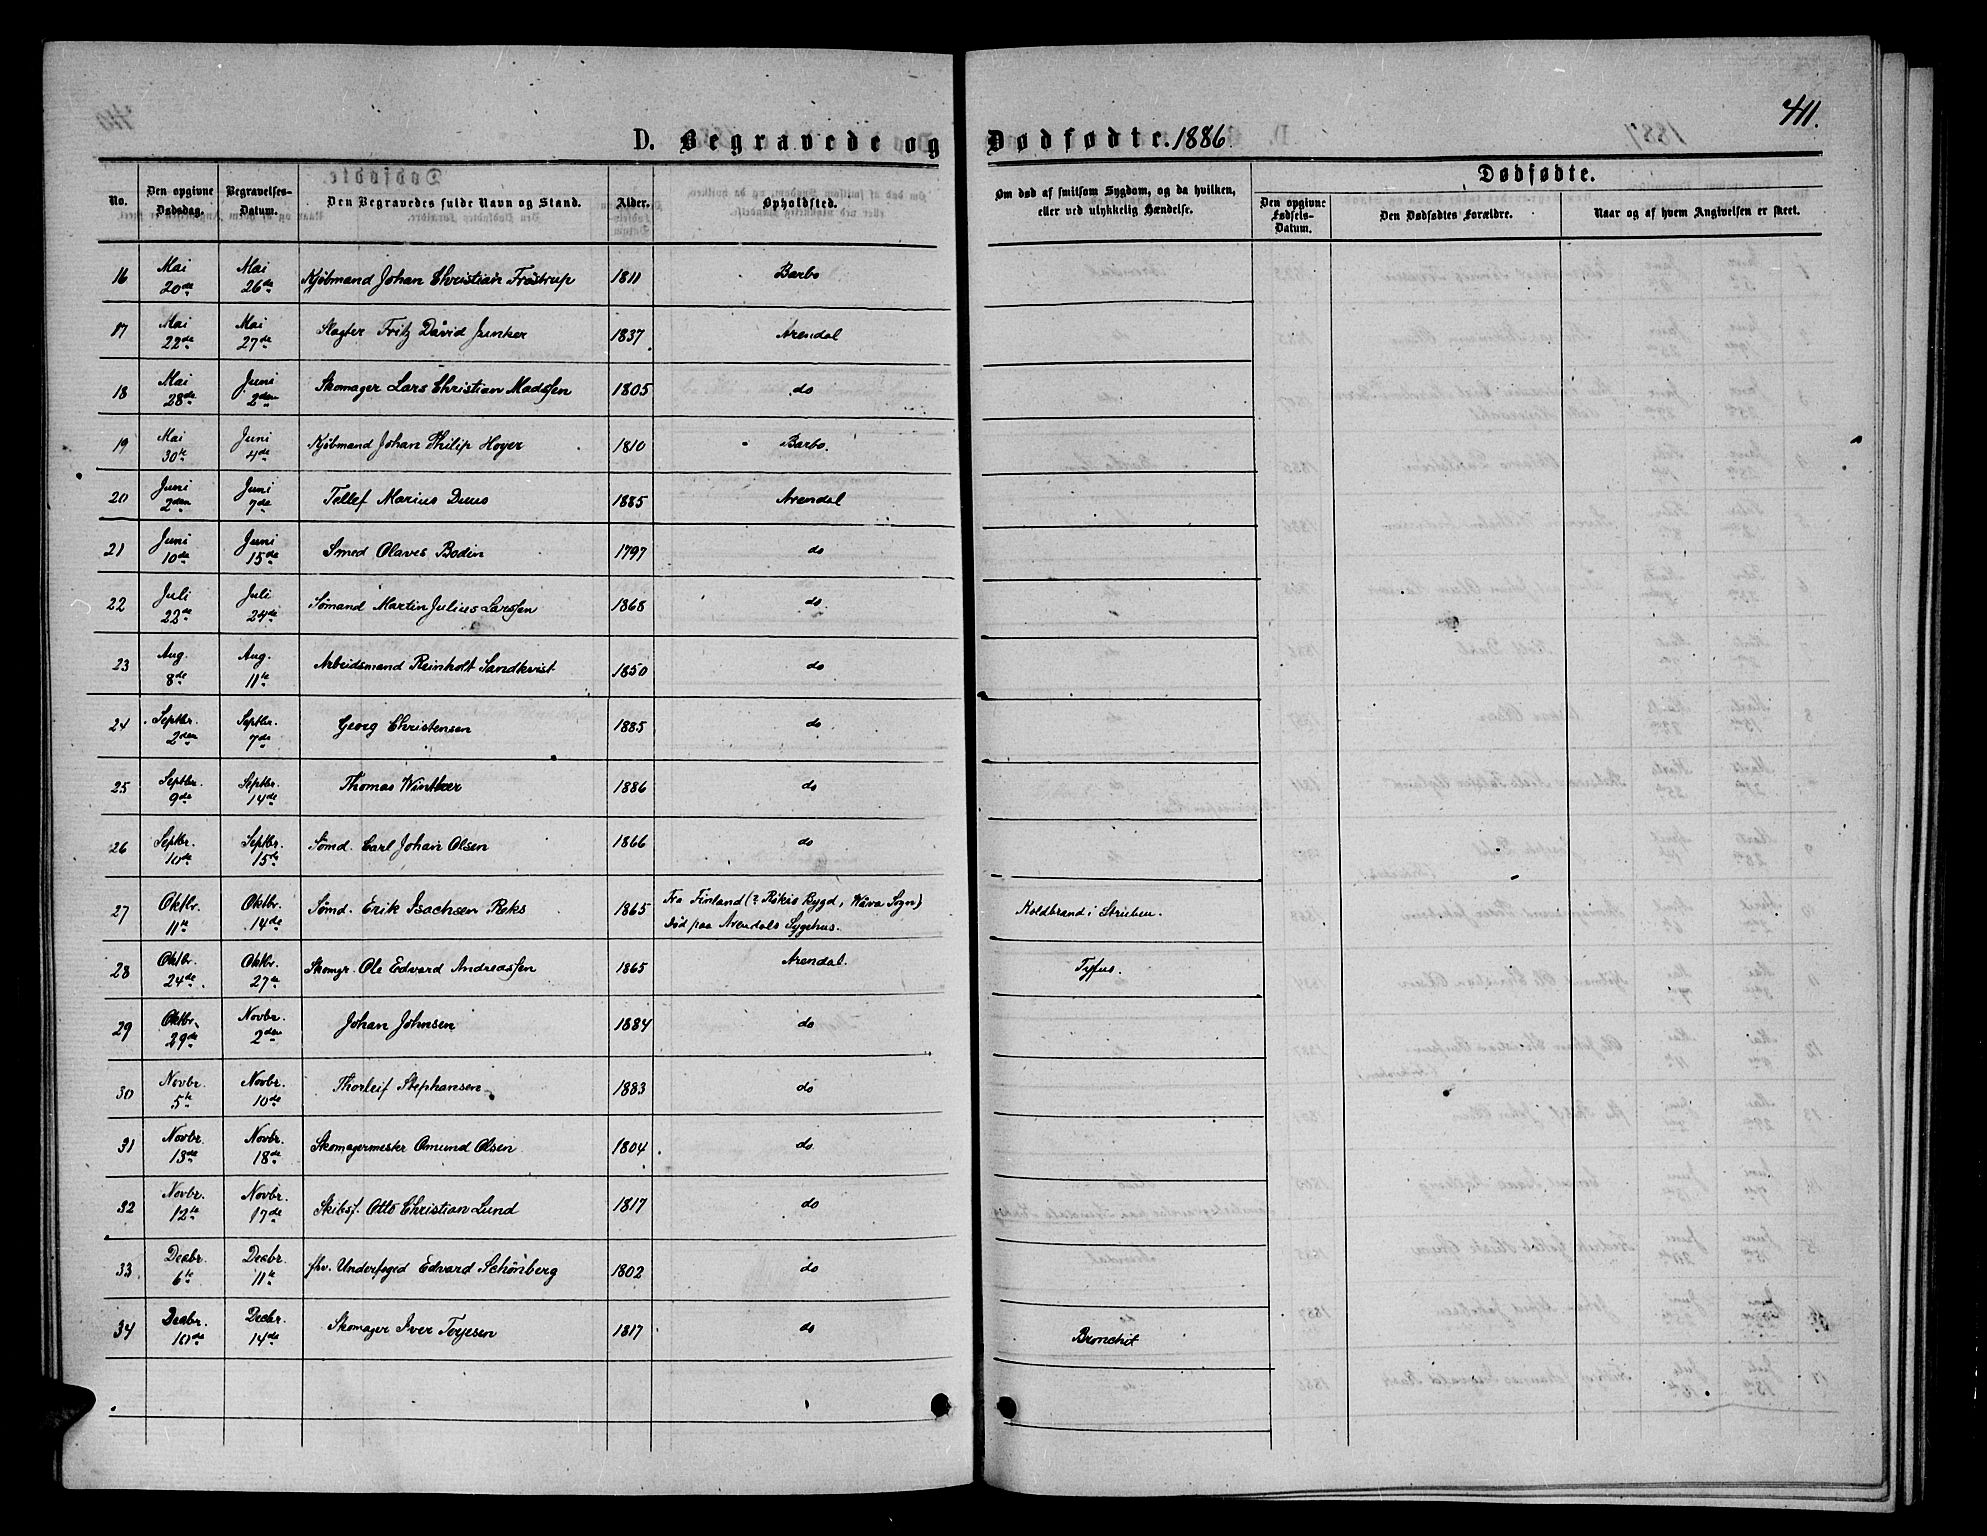 411.
D. Begravede og Dødfødte. 1886
No.
Den opgivne Dødsdag.
Begravelses-Datum.
Den Begravedes fulde Navn og Stand.
Alder.
Opholdsted.
Om død af smitsom Sygdom, og da hvilken, eller ved ulykkelig Hændelse.
Dødfødte.
Den opgivne Fødsels-Datum.
Den Dødfødtes Forældre.
Naar og af hvem Angivelsen er skeet.
16 Mai 20de Mai 26de Kjøbmand Johan Christian Frøstrup 1811 Barbo
17 Mai 22de Mai 27de Slagter Fritz David Junker 1837 Arendal
18 Mai 28de Juni 2den Skomager Lars Christian Madssen 1805 do
19 Mai 30te Juni 4de Kjøbmand Johan Philip Hoyer 1810 Barbo.
20 Juni 2den Juni 7de Tellef Marius Duus 1885 Arendal
21 Juni 10de Juni 15de Smed Olaves Bodin 1797 do
22 Juli 22de Juli 24de Sømand Martin Julius Larssen 1868 do
23 Aug. 8de Aug. 11te Arbeidsmand Reinholt Sandkvist 1850 do
24 Septbr. 2den Septbr. 7de Georg Christensen 1885 do
25 Septbr. 9de Septbr. 14de Thomas Winther 1886 do
26 Septbr. 10de Septbr. 15de Sømd. Carl Johan Olsen 1866 do
27 Oktbr. 11te Oktbr. 14de Sømd. Erik Isachsen Reks 1865 Fra Finland (? Røkiö Bygd, Wäva Sogn) Død paa Arendals Sygehus. Koldbrand i Struben.
28 Oktbr. 24de. Oktbr. 27de Skomgr. Ole Edvard Andreassen 1865 Arendal. Tyfus.
29 Oktbr. 29de Novbr. 2den Johan Johnsen 1884 do
30 Novbr. 5te Novbr. 10de Thorleif Stephansen 1883 do
31 Novbr. 13de Novbr. 18de Skomagermester Omund Olsen 1804 do
32 Novbr. 12te Novbr. 17de Skibsf. Otto Christian Lund 1817 do
33 Decbr. 6te Decbr. 11te fhv. Underfoged Edvard Schönberg 1802 do
34 Decbr. 10de Decbr. 14de Skomager Iver Torjesen 1817 do Bronchit